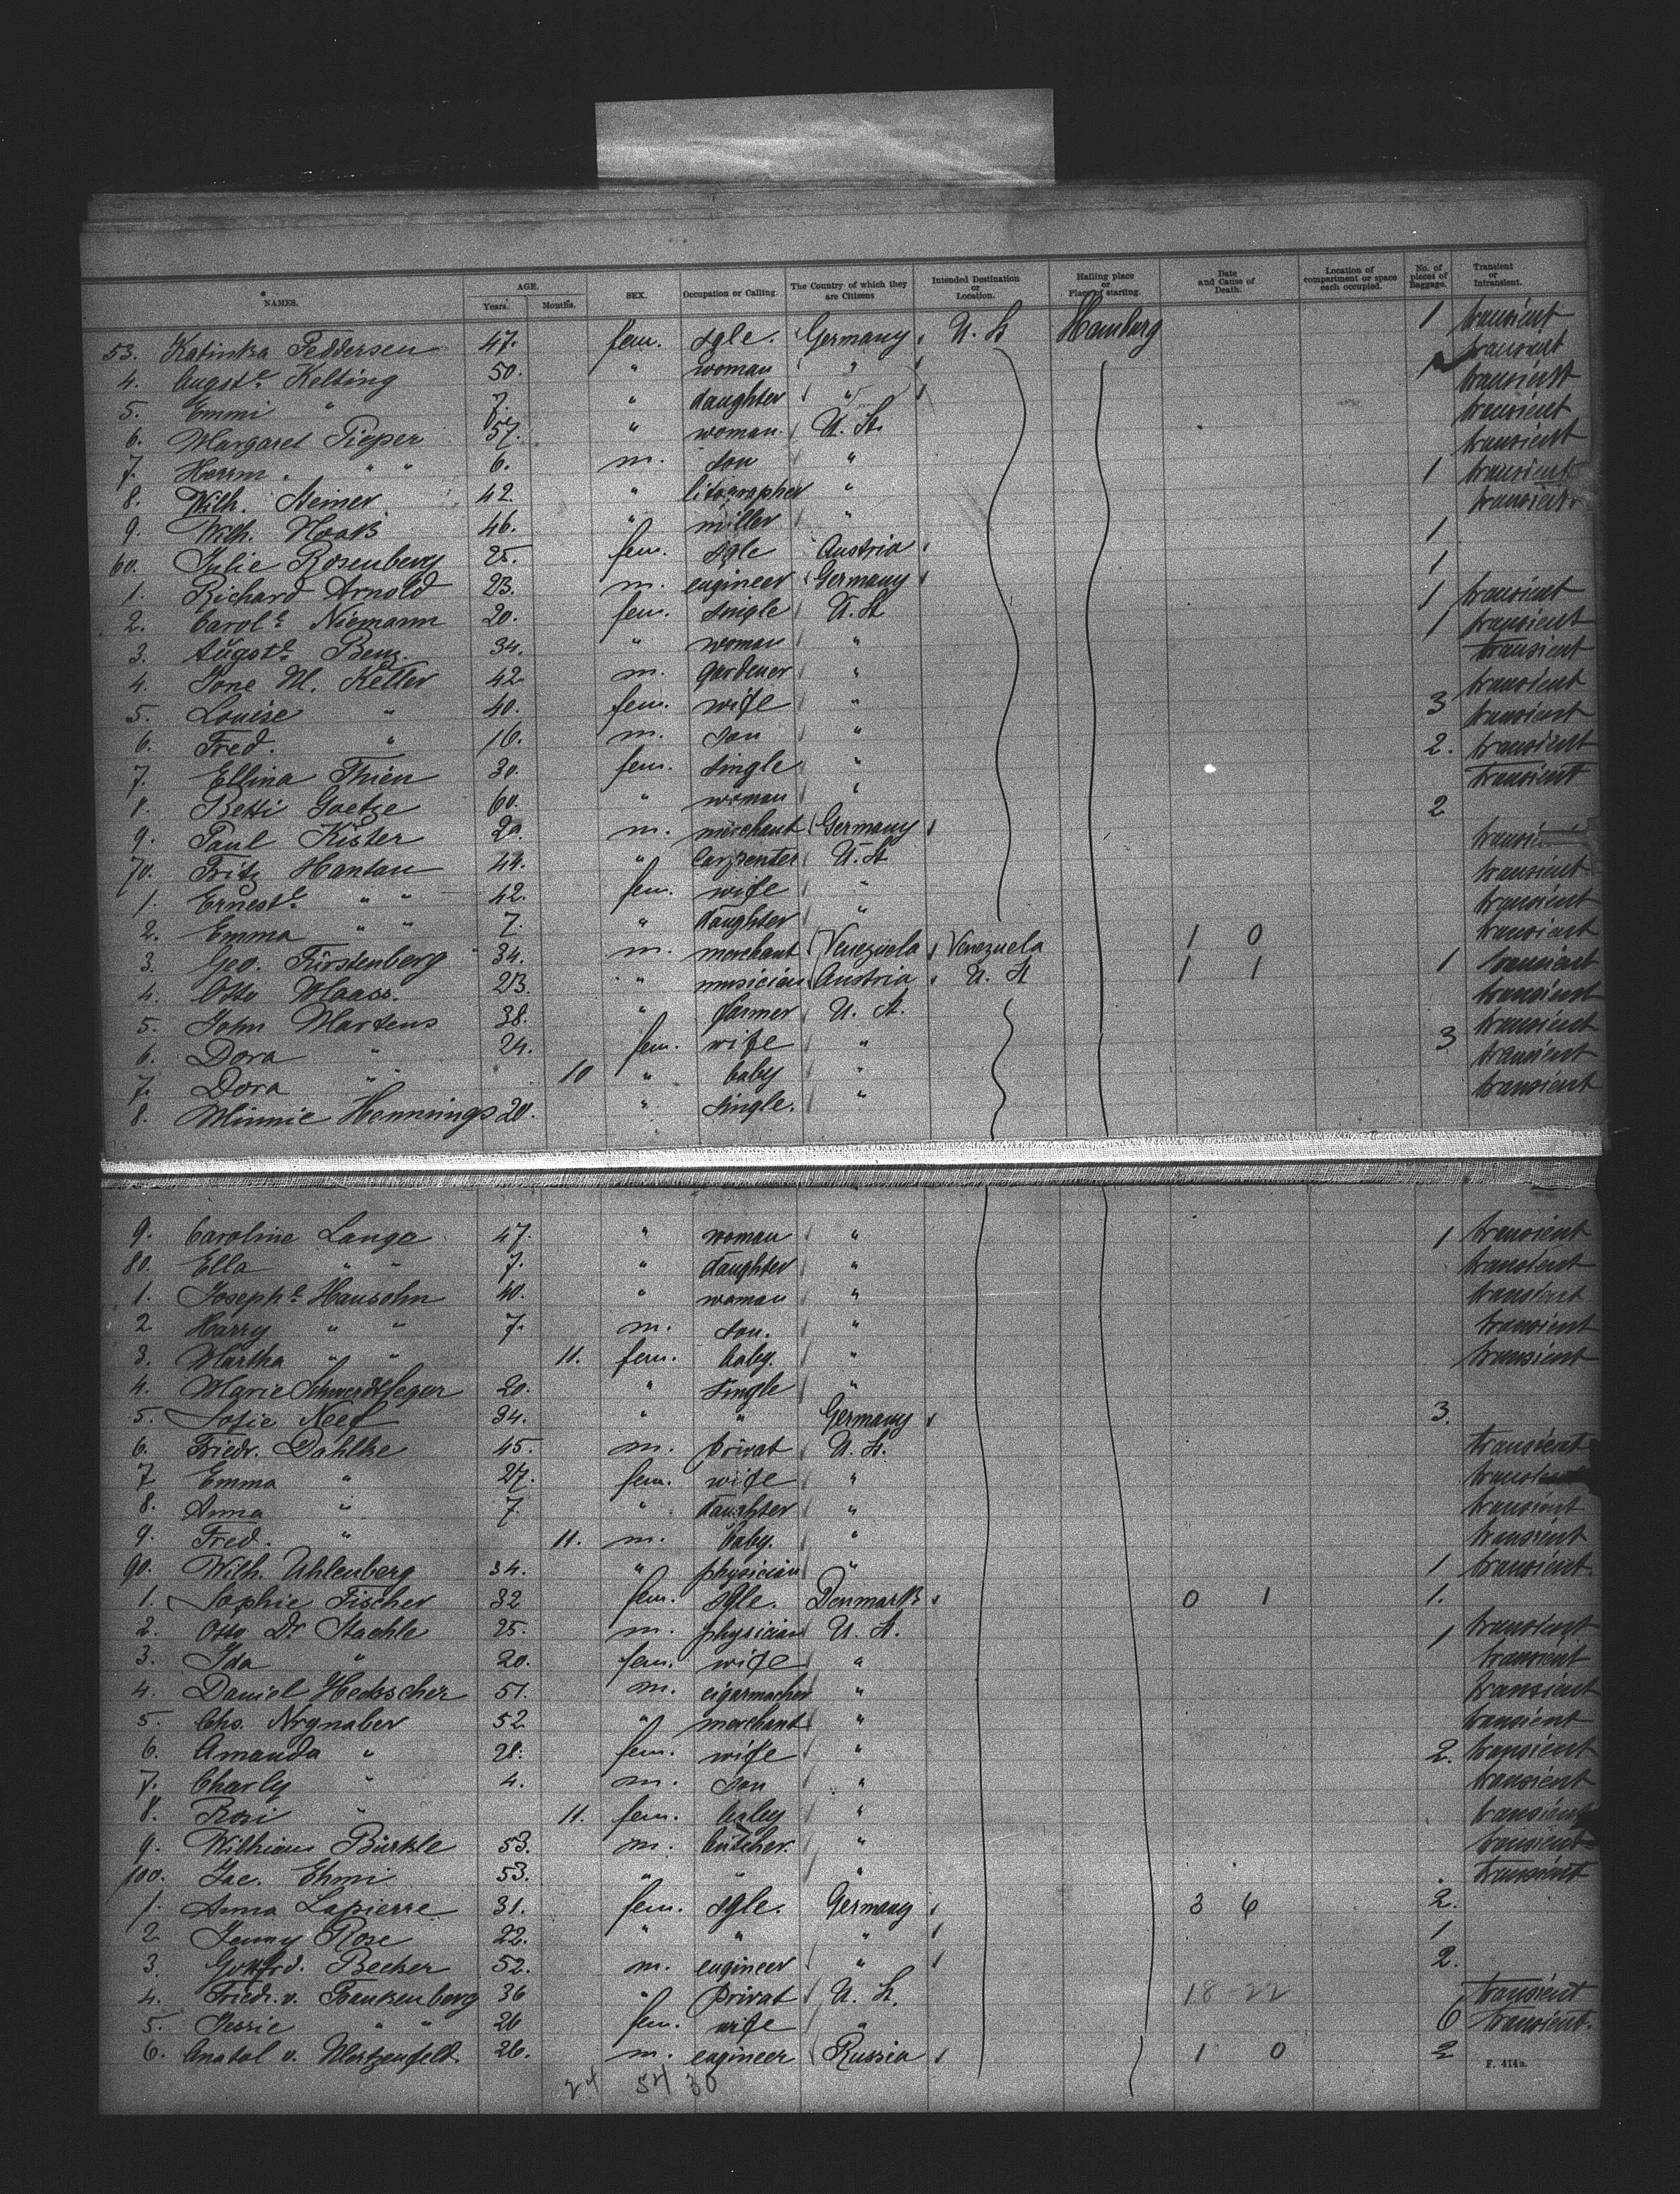 NAMES. AGE. Years. Months. SEX. Occupation or Calling. The Country of which they are Citizens Intended Destination or Location. Hailing place or Place of starting. Date and Cause of Death. Location of compartment or space each occupied. No. of pieces of Baggage. Transient or Intransient.
53. Katinka Feddersen 47. fem. sgle. Germany U. St Hamburg 1 transient
4. Augste. Kelting 50. " woman " 1 transient
5. Emmi " 7. " daughter " transient
6. Margaret Pieper 57. " woman U. St. transient
7. Herrm. " " 6. m. son " transient
8. Wilh. Steiner 42. " litographer " 1 transient
9. Wilh. Noack 46. " miller " transient
60. Julie Rosenberg 25. fem. sgle Austria 1
1. Richard Arnold 23. m. engineer Germany 1
2. Carole Niemann 20. fem. single U. St 1 transient
3. Augste. Benz. 34. " woman " 1 transient
4. Jone M. Keller 42 m. gardener " transient
5. Louise " 40. fem. wife " transient
6. Fred. " 16. m. son " 3 transient
7. Ellina Thien 30. fem. single " 2. transient
8. Betti Goetze 60. " woman " transient
9. Paul Kister 20. m. merchant Germany 2
70. Fritz Hantau 44. " carpenter U. St transient
1. Erneste " " 42. fem. wife " transient
2. Emma " " 7. " daughter " transient
3. Geo. Fürstenberg 34. m. merchant Venezuela Venezuela 1 0 transient
4. Otto Maass. 23. " musician Austria U. St 1 1 1 transient
5. John Martens 38. " farmer U. St. transient
6. Dora " 24. fem. wife " 3 transient
7. Dora " 10 " baby " transient
8. Minnie Hennings 20. " single. " transient
9. Caroline Lange 47. " woman " 1 transient
80. Ella " " 7. " daughter " transient
1. Josephe Hansohn 40. " woman " transient
2 Harry " " 7. m. son. " transient
3. Martha " " 11. fem. baby. " transient
4. Marie Schwerdtfeger 20. " single "
5. Sofie Neef 34. " " Germany 3.
6. Friedr. Dahlke 45. m. privat U. St. transient
7 Emma " 27. fem. wife " transient
8. Anna " 7. " daughter " transient
9. Fred. " 11. m. baby. " transient
90. Wilh. Uhlenberg 34. " physician " 1 transient
1. Sophie Fischer 32 fem. sgle. Denmark 0 1 1.
2. Otto Dr. Staehle 25. m. physician U. St. 1 transient
3. Ida " 20. fem. wife " transient
4. Daniel Heckscher 51. m. cigarmacher " transient
5. Chs. 52 " merchant " transient
6. Amanda " 28. fem. wife " 2. transient
7. Charly " 4. m. son " transient
8. Rosi " 11. fem. baby " transient
9. William Bürkle 53. m. butcher. " transient
100. Jac. Ehmi 53. " " " transient
1. Anna Lapierre 31. fem. sgle. Germany 3 6 2.
2 Jenny Rose 22. " " " 1
3. Gottfrd. Becker 52. m. engineer " 2.
4. Friedr. v. Frankenberg 36 " privat U. St. 18-22 transient
5. Jessie " " 26 fem. wife " 6 transient.
6. Anatol v. 26. m. engineer Russia 1 0 2
24 54 30
F. 414a.